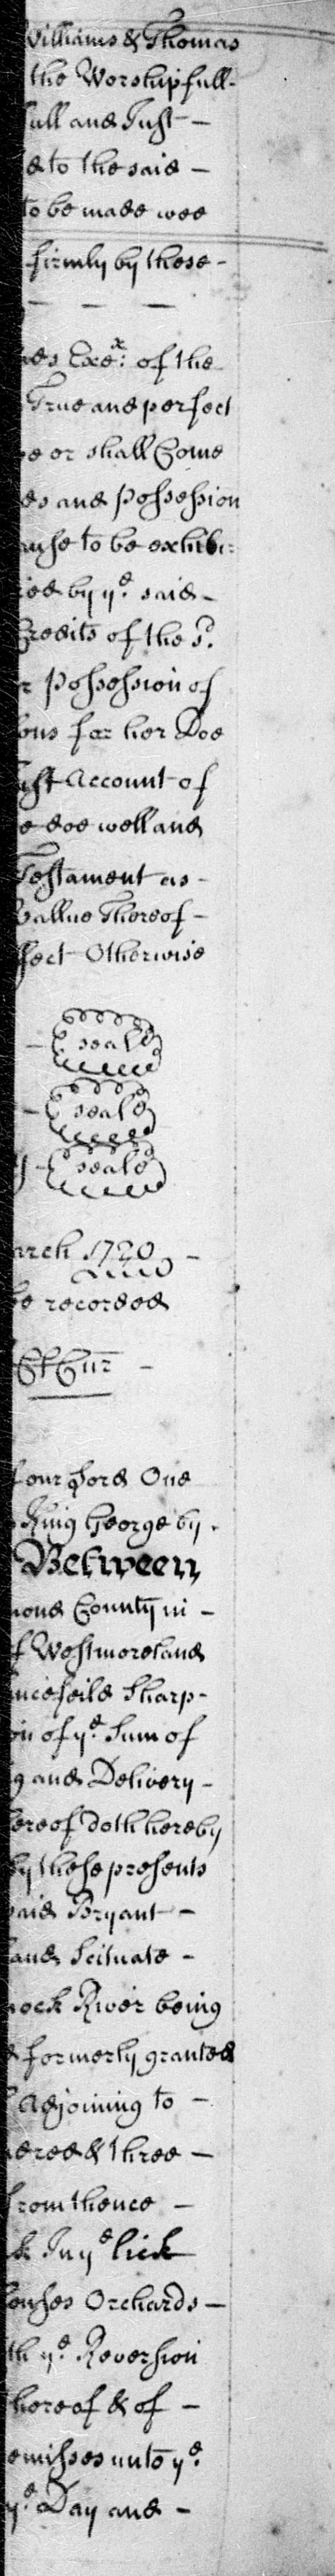 Williams & Thomas
the Worshipfull-
full and Just -
d to the said -
to be made wee
firmly by these -
- - -
des Exex: of the
True and perfect
e or shall Come
ds and Possession
ause to be exhibi:
ied by ye said -
Credits of the sd.
r Possession of
ons for her Doe
ust Account of
e doe well and
Testament as -
Vallue Thereof -
ffect Otherwise
- seale
- seale
- seale
arch 1720 -
be recorded
Cl Cur -
four pore One
King George by
Between
mond County in -
f Westmoreland
Sharp-
on of ye Sum of
g and Delivery -
ereof doth hereby
by these presents
said Bryant -
and Scituate -
nock River being
& formerly granted
Adjoining to -
dred & three -
from thence -
k In ye lick
ouses Orchards -
th ye Reversion
hereof & of -
emisses unto ye
ye Day and -